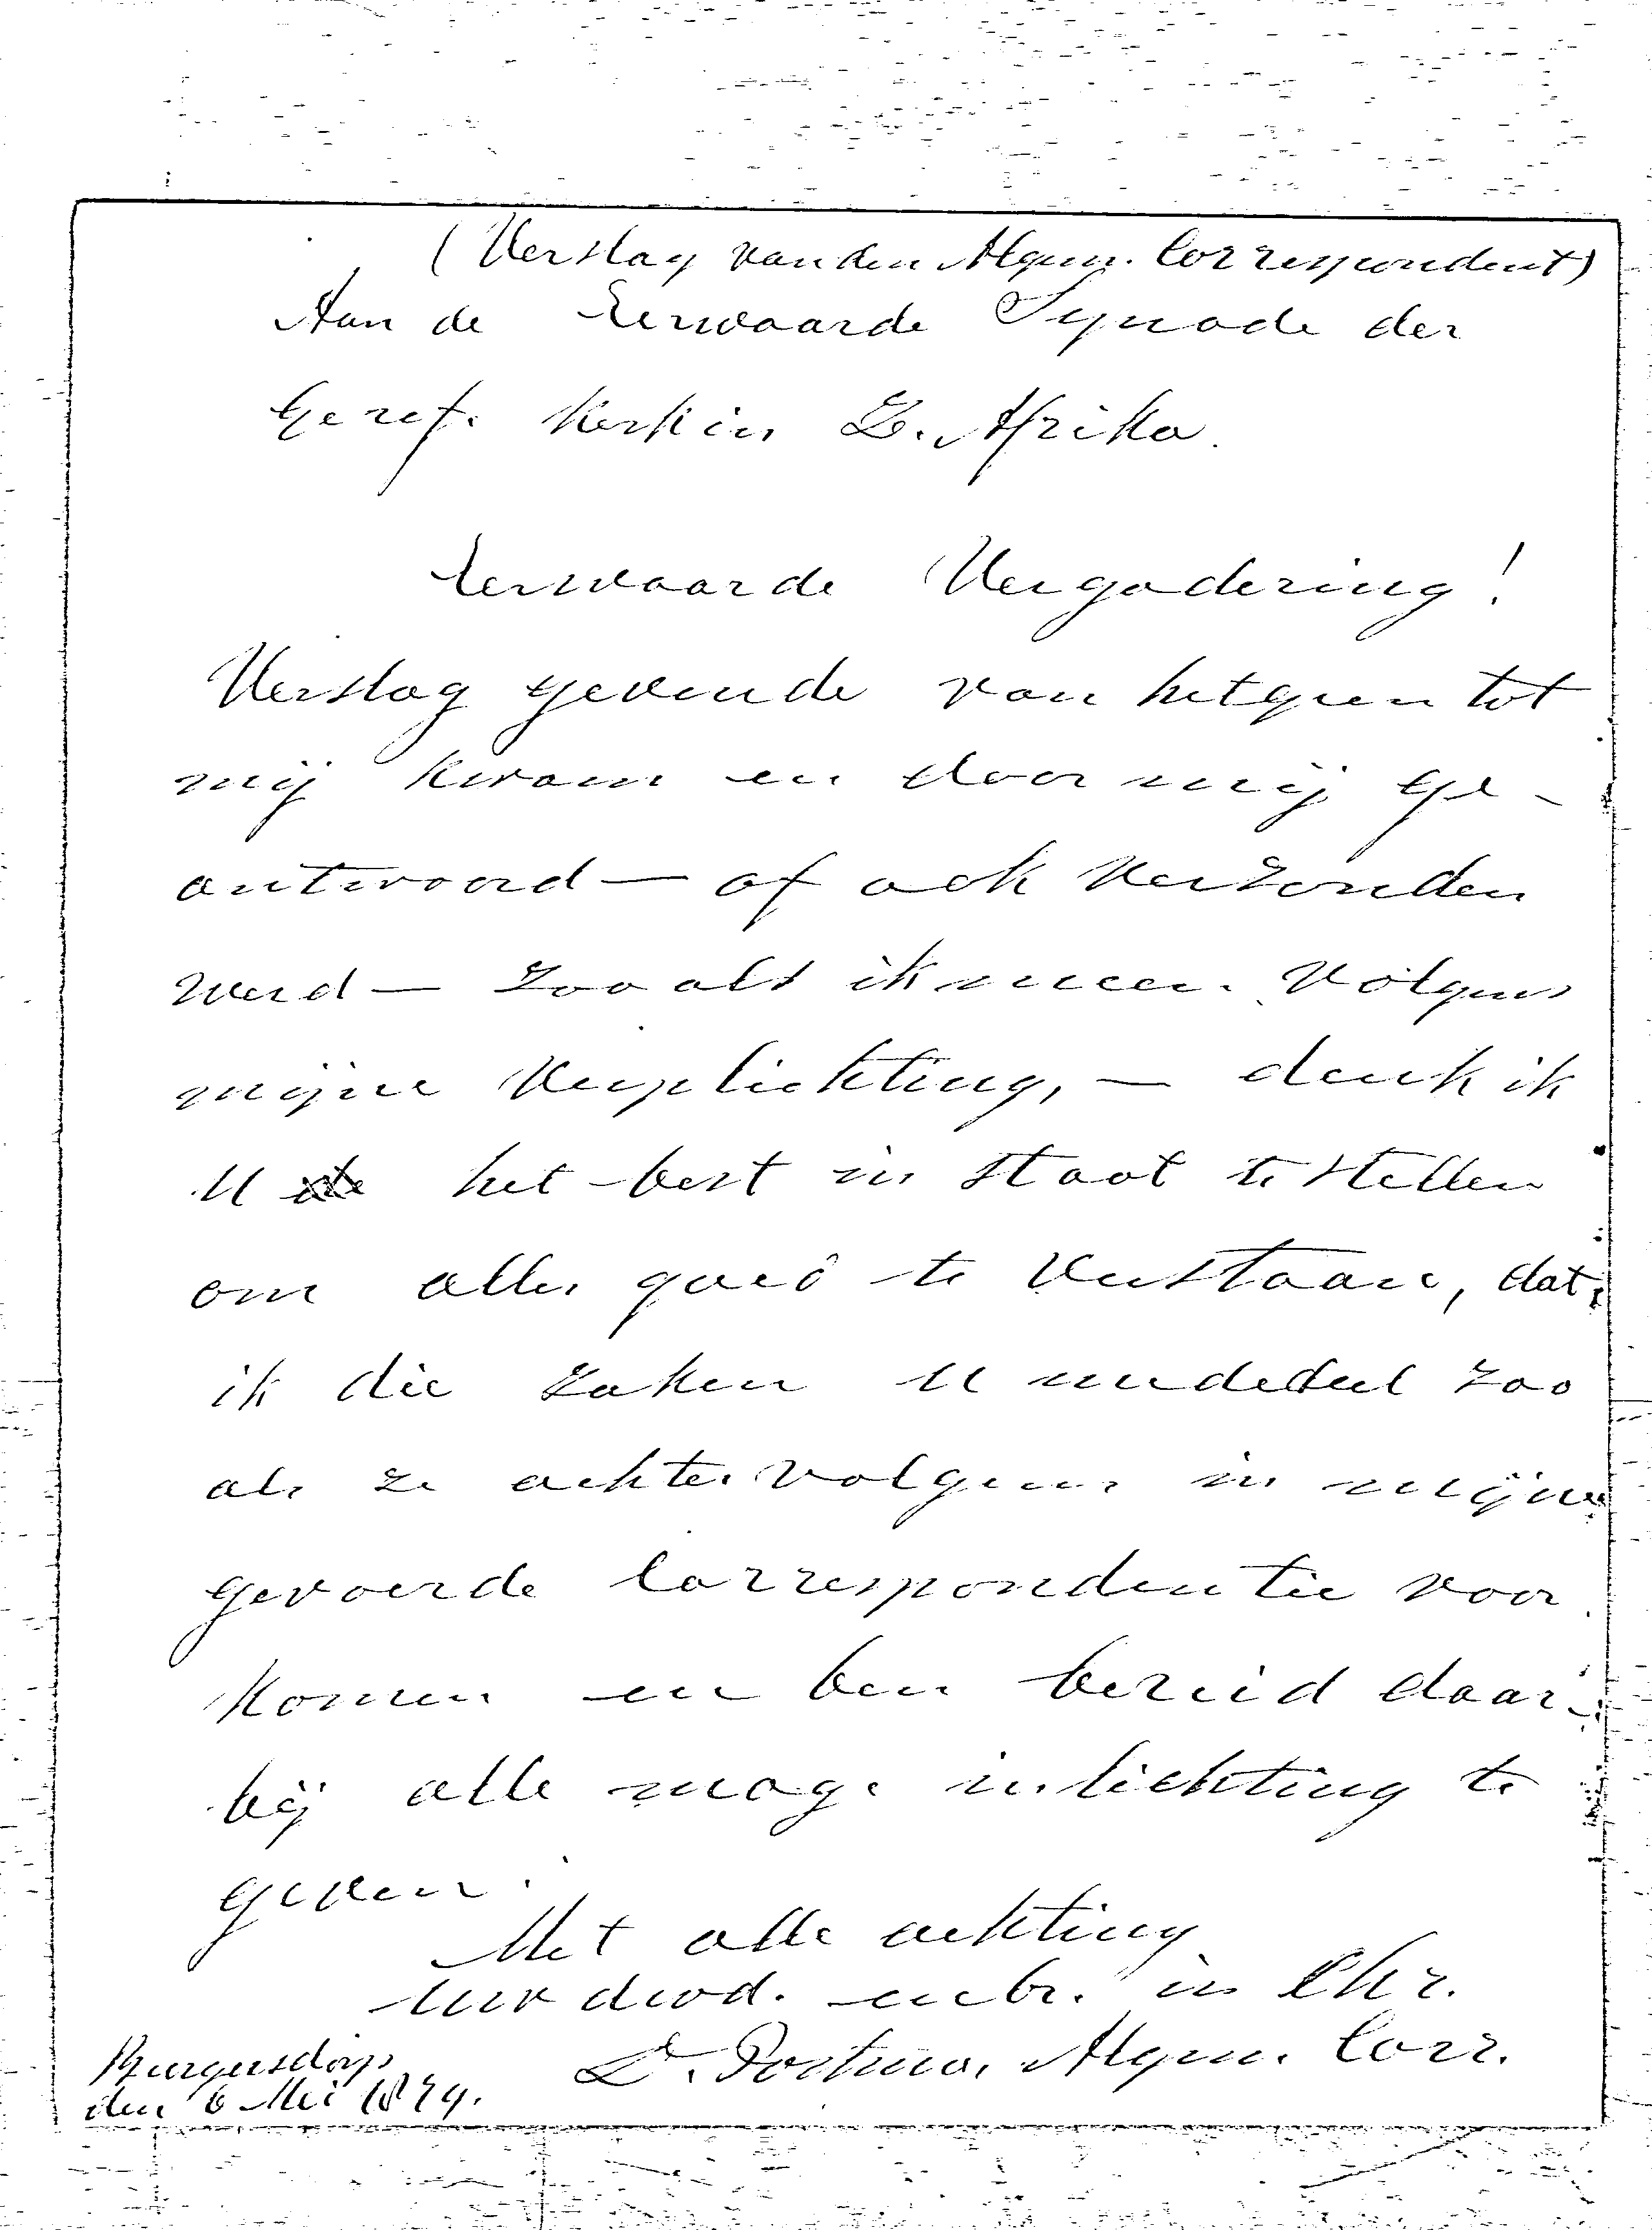 (Verslag van den Algem. Correspondent)
Aan de Eerwaarde Synode der
Geref. Kerk in Z. Afrika.
Eerwaarde Vergadering!
Verslag gevende van hetgeen tot
mij kwam en door mij ge-
antwoord — of ook verzonden
werd — zooals ik meen. Volgens
mijne Verplichting, — denk ik
U het best in staat te stellen
om alles goed te verstaan, dat,
ik die zaken U mededeel zoo
als ze achtervolgens in mijne
gevoerde Correspondentie voor
komen en ben bereid daar-
bij alle mog. inlichting te
geven.
Met alle achting
Uw dwd. mbr. in Chr.
D. Postma, Algem. Corr.
Burgersdorp
den 6 Mei 1879.